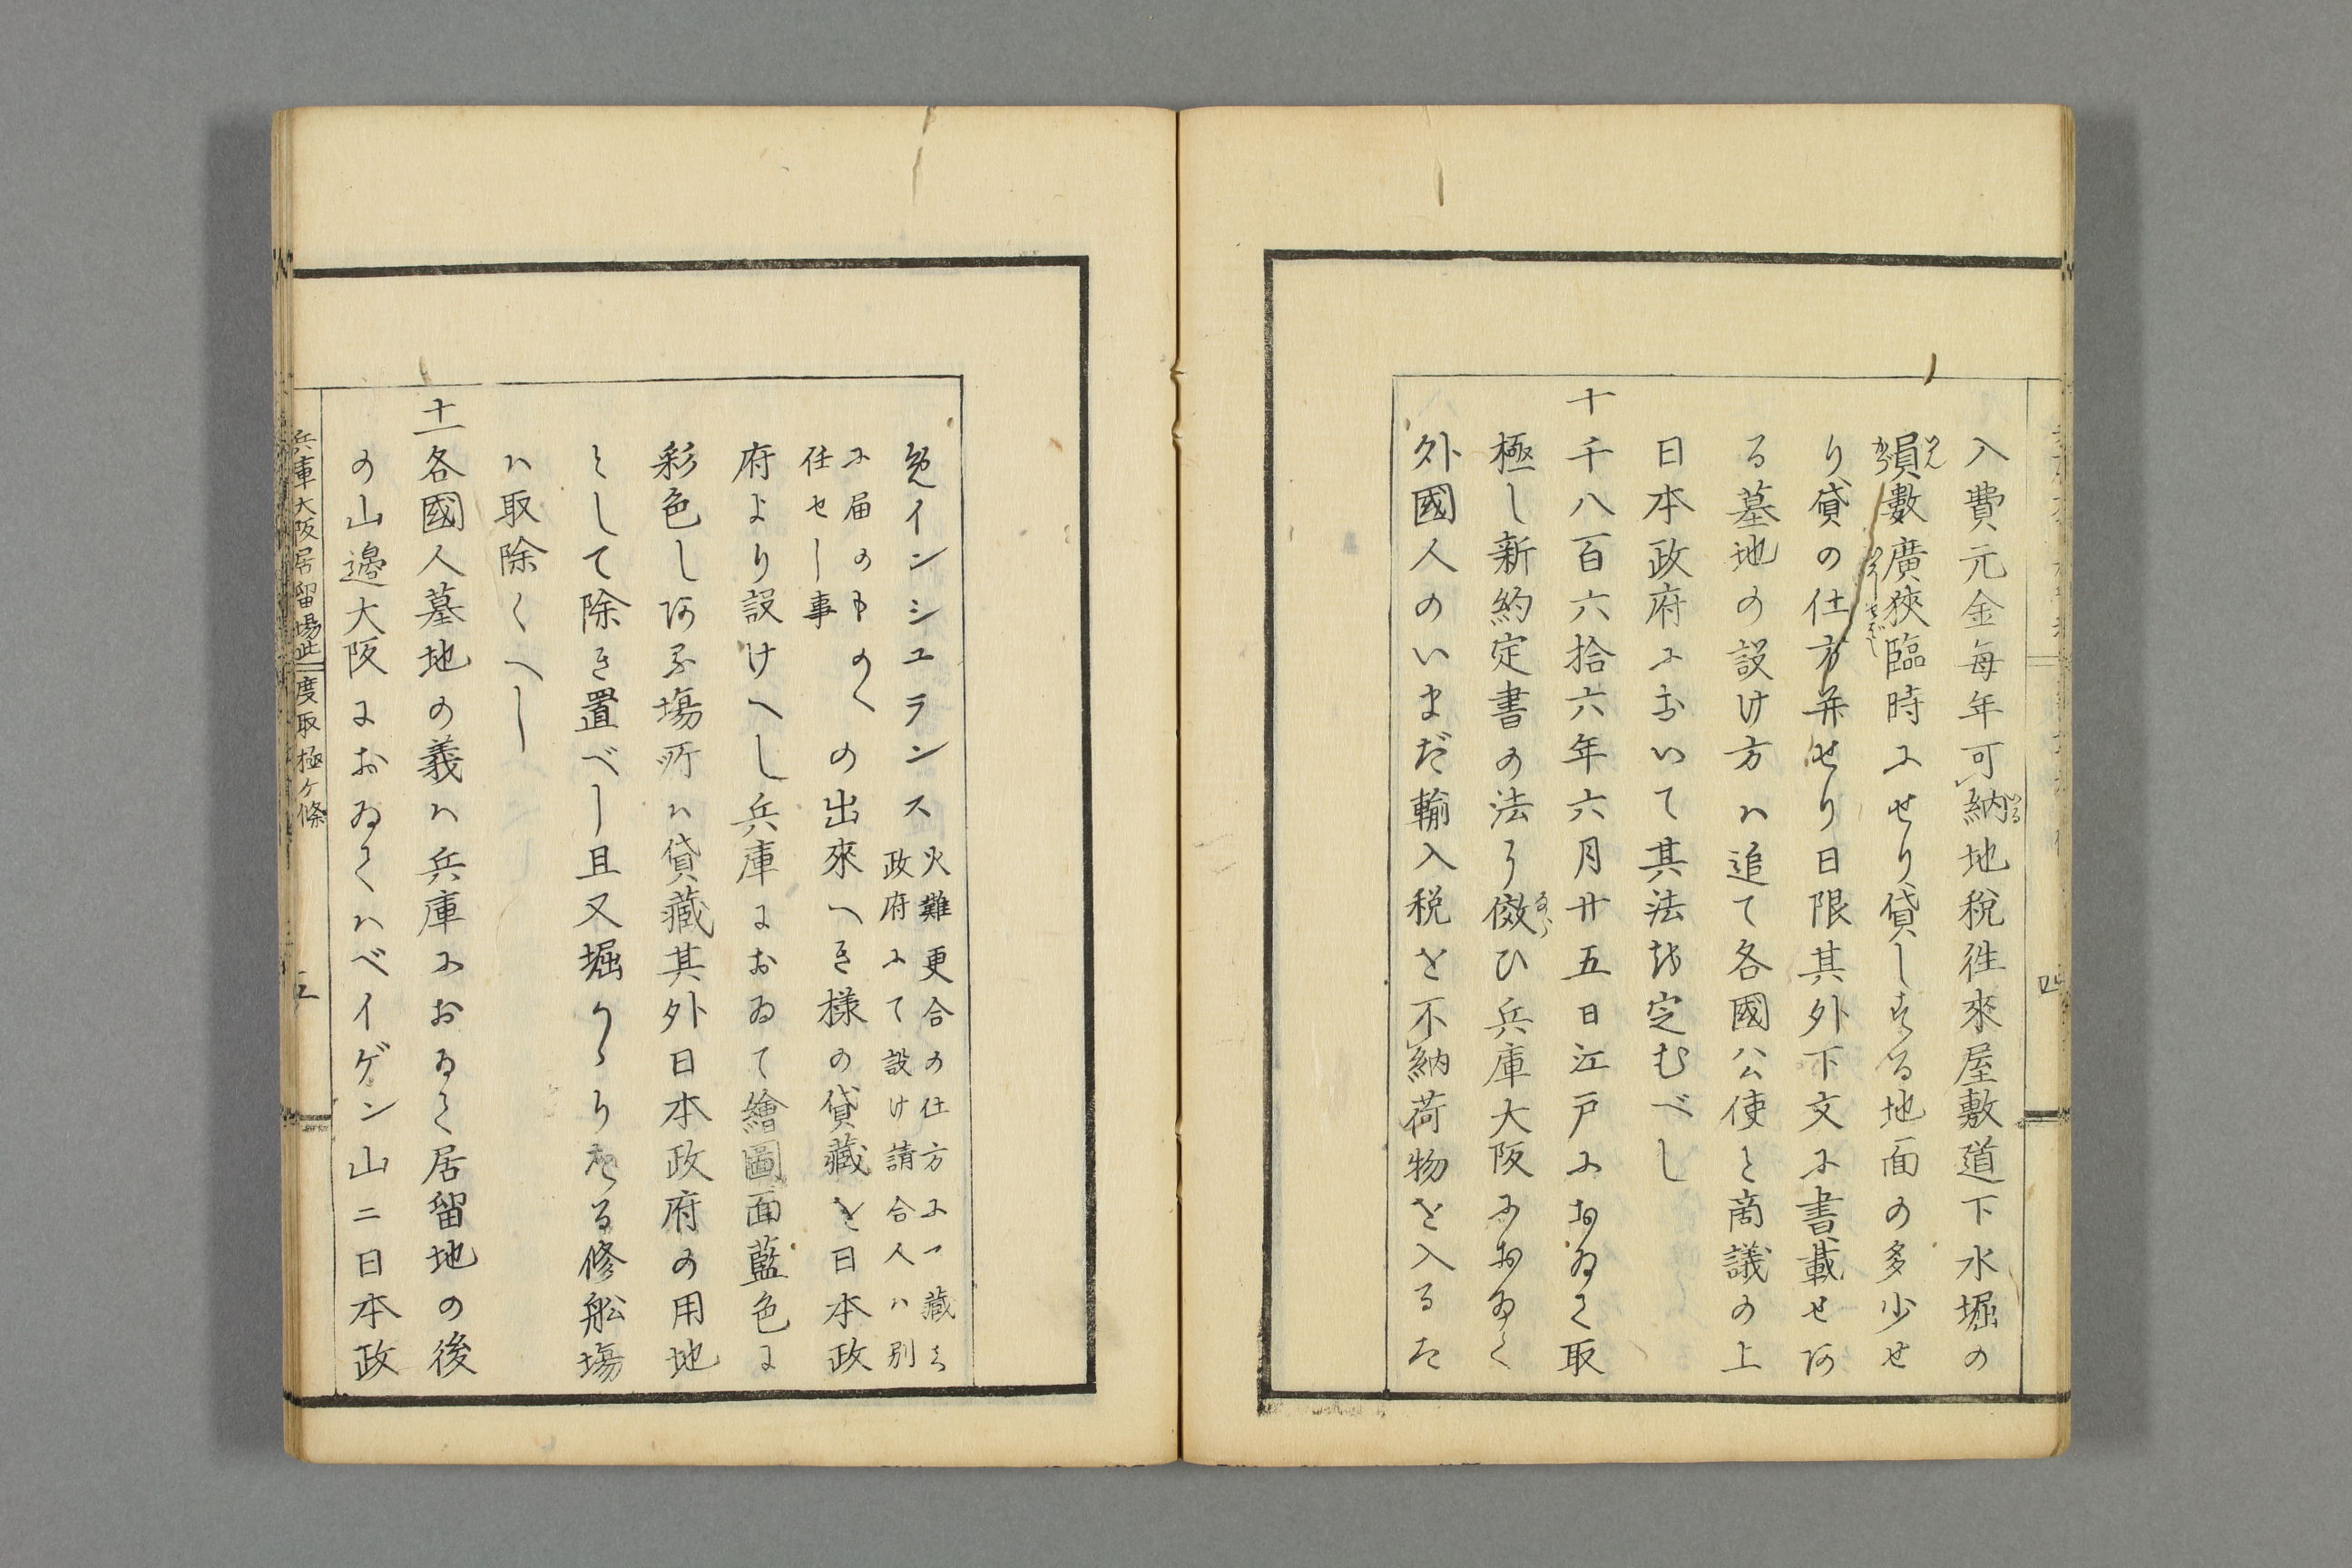 入費元金每年可納地税徃來屋敷道下水堀の
員數廣狹臨時ニせり貸しする地面の多少せ
り貸の仕方并せり日限其外下文ニ書載せる
る墓地の設け方ハ追て各國公使と商議の上
日本政府ニおいて其法を定むべし
十 千八百六拾六年六月廿五日江戸ニおゐて取
極し新約定書の法に傚ひ兵庫大阪ニおゐて
外國人のいまだ輸入税を不納荷物を入るた
免インシユランス
火難更合の仕方ニて藏を
政府ニて設け請合人ハ別
ニ届の
仕せし事
の出來へき樣の貸藏を日本政
府より設けへし兵庫におゐて繪圖面藍色に
彩色しある場所ハ貸藏其外日本政府の用地
として除き置べし且又堀りかゝりたる修舩場
ハ取除くへし
十一 各國人墓地の義ハ兵庫ニおゐて居留地の後
の山邊大阪におゐてハベイゲン山ニ日本政
兵庫大阪居留場此度取極ケ條
五
四